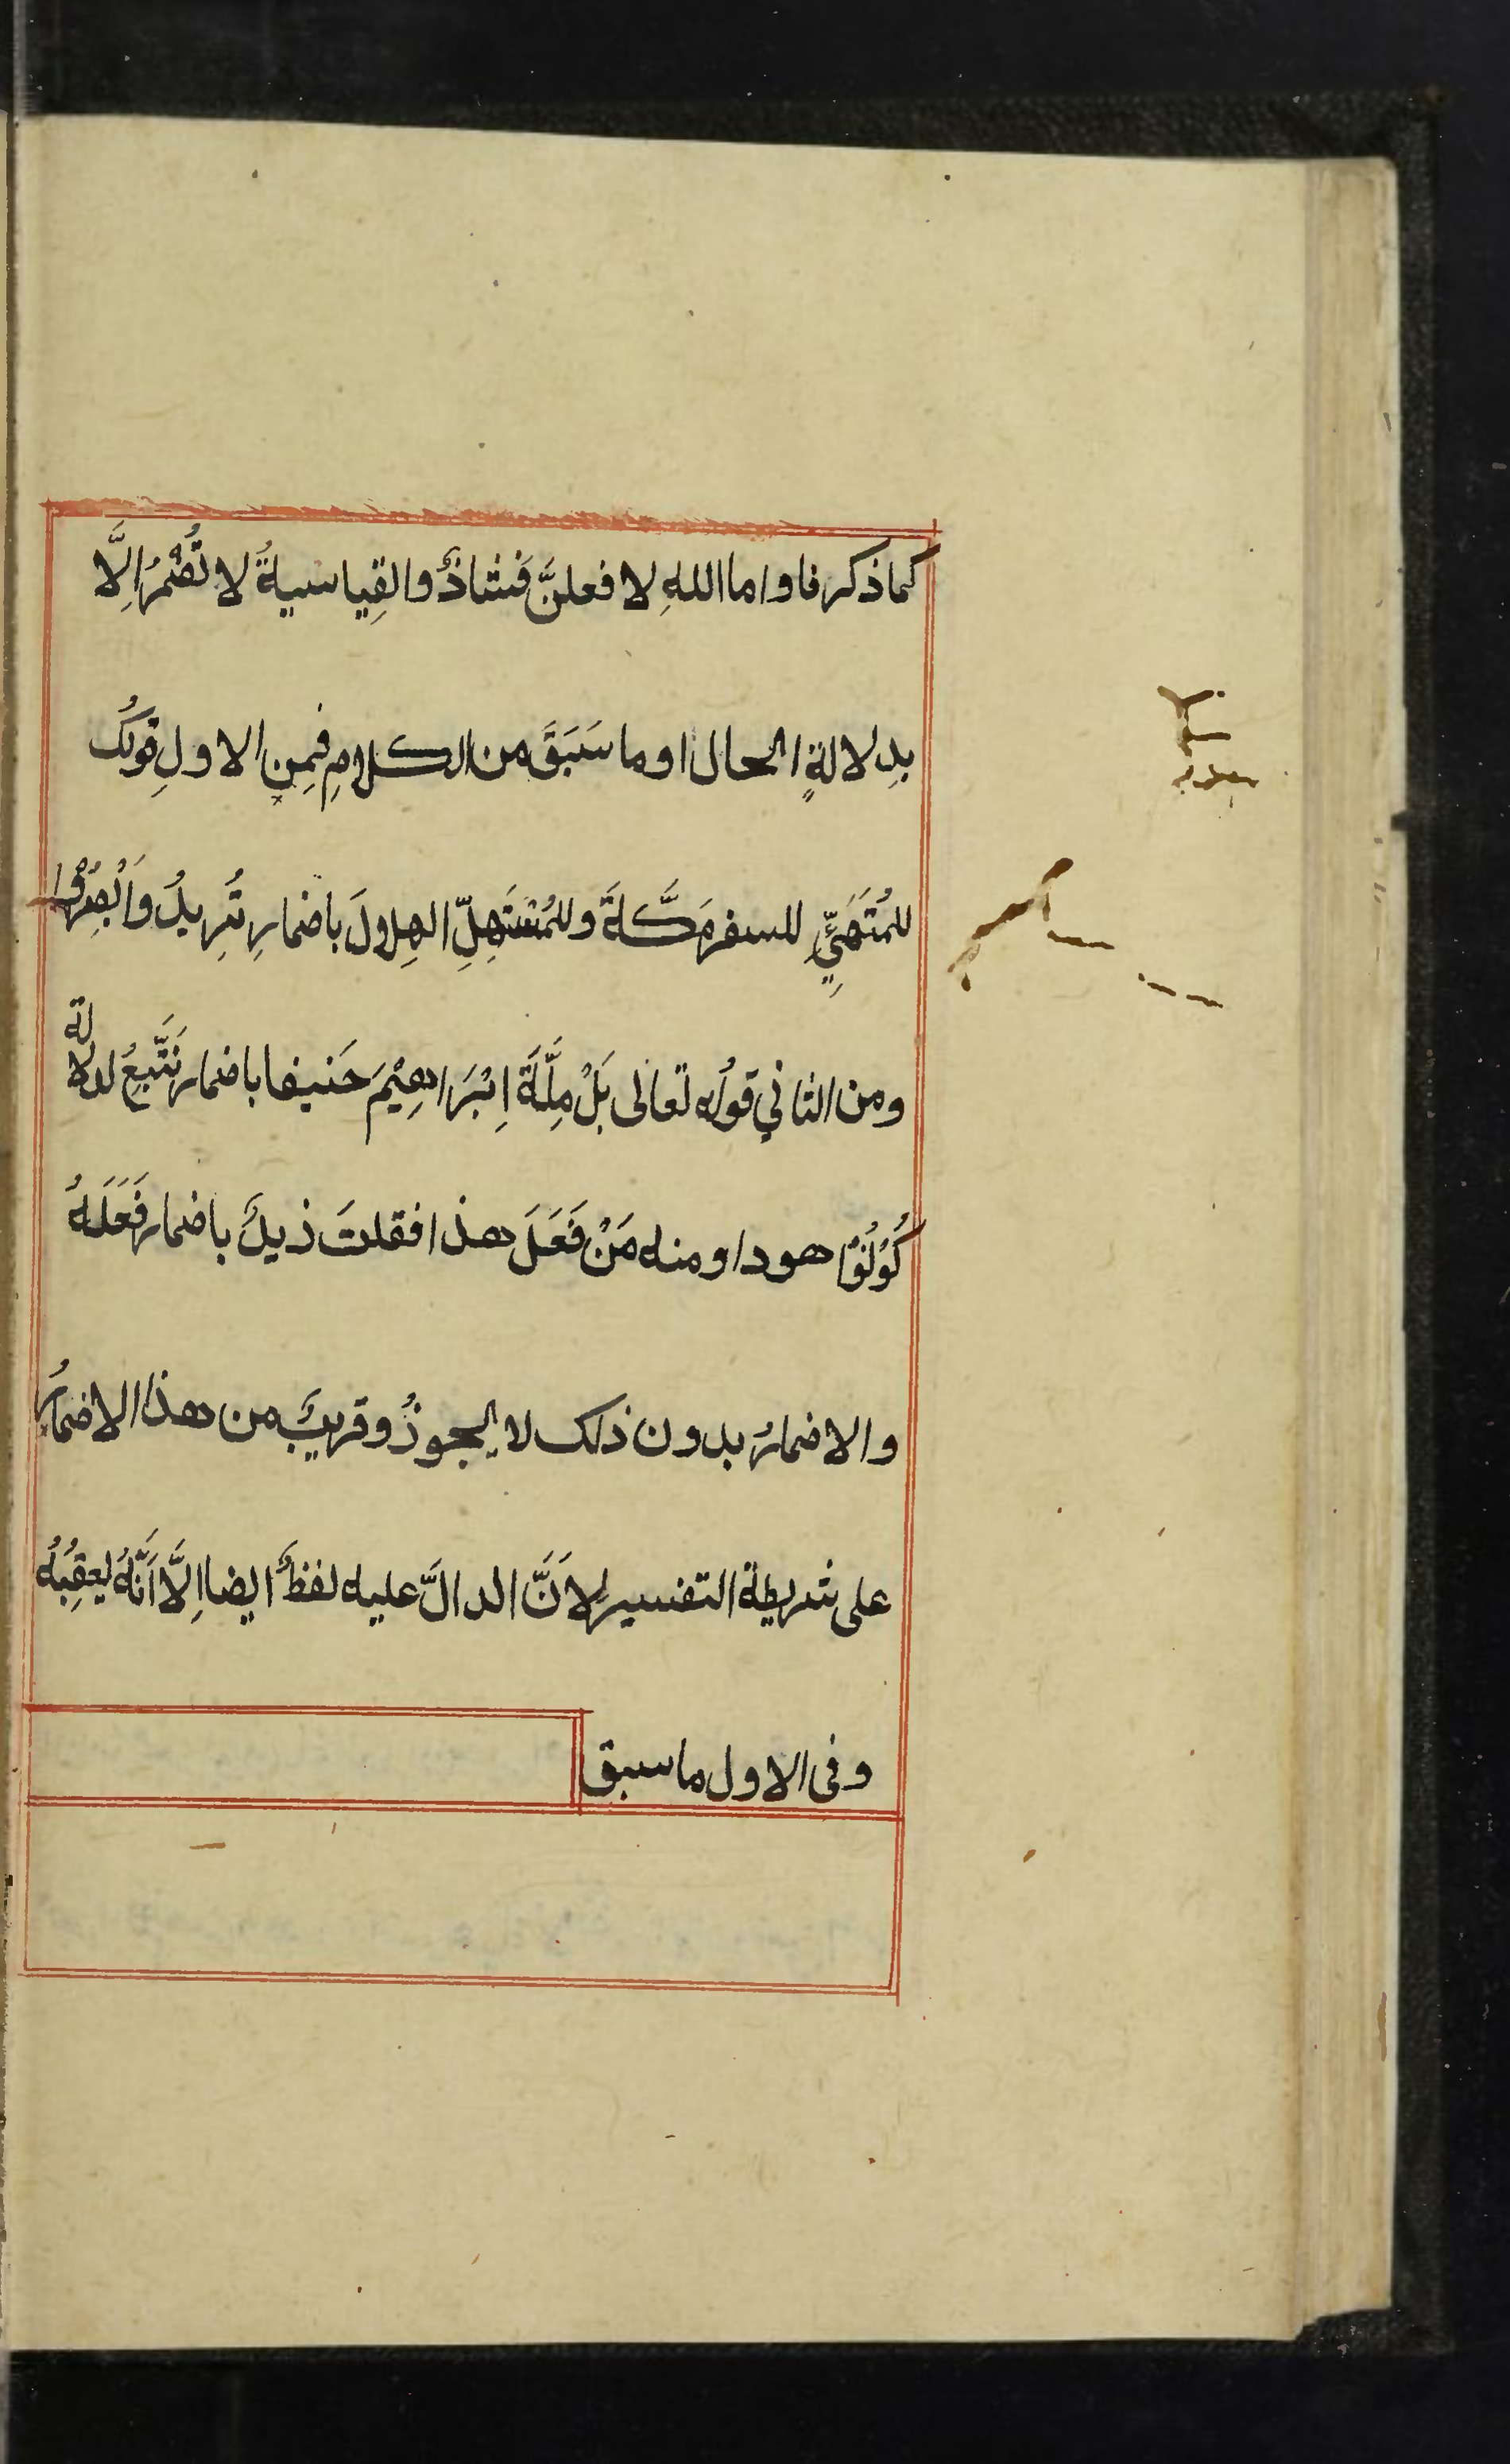 كما ذكرنا واما اللهِ لا فعلنَّ فشاذٌ والقِياسيةُ لا تُضْمَرُ اِلَّا
بِدلالةِ الحال او ما سَبَقَ من الكلامِ فمِن الاولِ قولكُ
للمُتَهَيِّئِ للسفر مَكَّةَ وللمُسْتَهِلِّ الهِلالَ باضمارِ تُرِيدُ وَاَبْصَرُوا
ومن الثاني قولُه تعالى بَلْ مِلَّةَ اِبْرَاهِيْمَ حَنيفا باضمار نَتَّبِعُ لدلالة
كُوْنُوْا هودا ومنه مَنْ فَعَلَ هذا فقلتَ زيدٌ باضمار فَعَلَهُ
والاضمارُ بدون ذلك لا يجوزُ وقريبٌ من هذا الاضمارُ
على شريطة التفسير لِاَنَّ الدالَّ عليه لفظٌ ايضا اِلَّا اَنَّهُ يعقِبُهُ
وفى الاول ما سبق